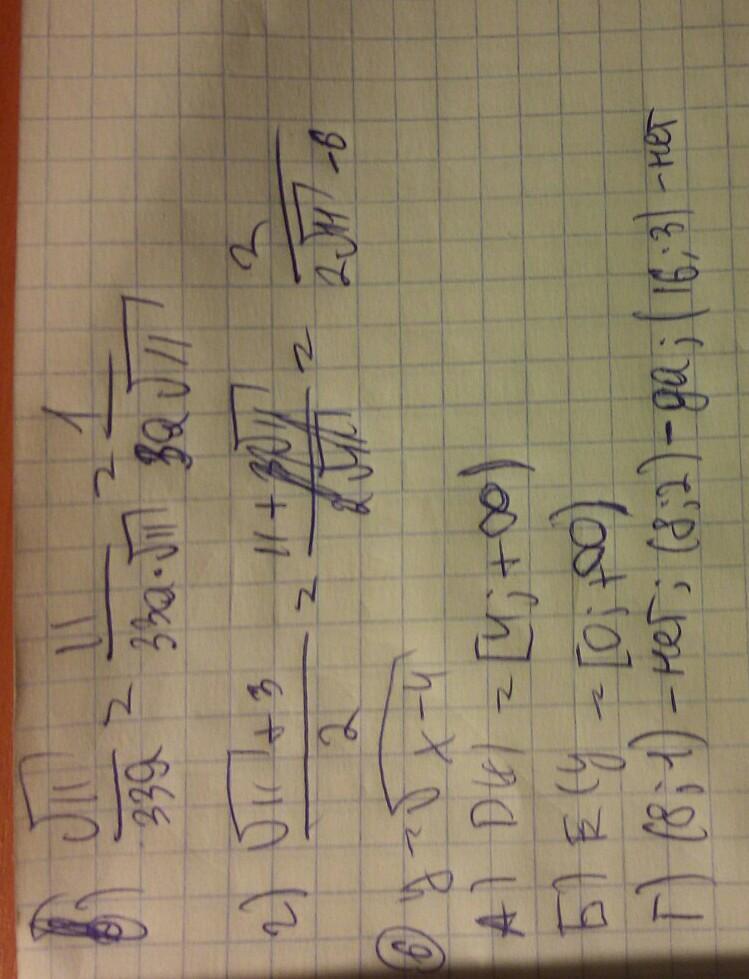 в) √11/33a = 11/33a·√11 = 1/3a√11
г) √11+3/2 = 11+3√11/2√11 = 2/2√11-6
⑥ y=√x-4
А) D(x) = [4; +∞)
Б) E(y = [0; +∞)
Г) (8;1) - нет; (8;2) - да; (16;3) - нет